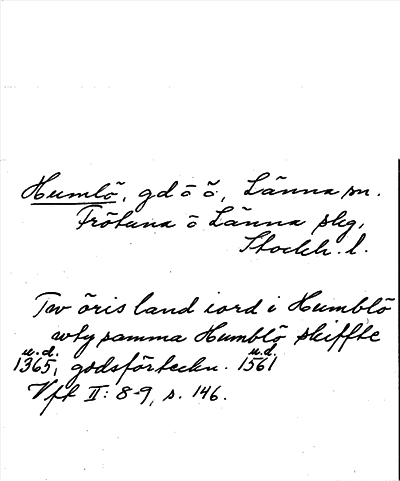 Humlö, gd ō ȫ, Länna sn.
Frötuna ō Länna skg,
Stockh. l.
Tw öris land iord i Humblö
wty samma Humblö skiffte
u.d. u.d.
1365, godsförteckn. 1561
Vft II: 8-9, s. 146.